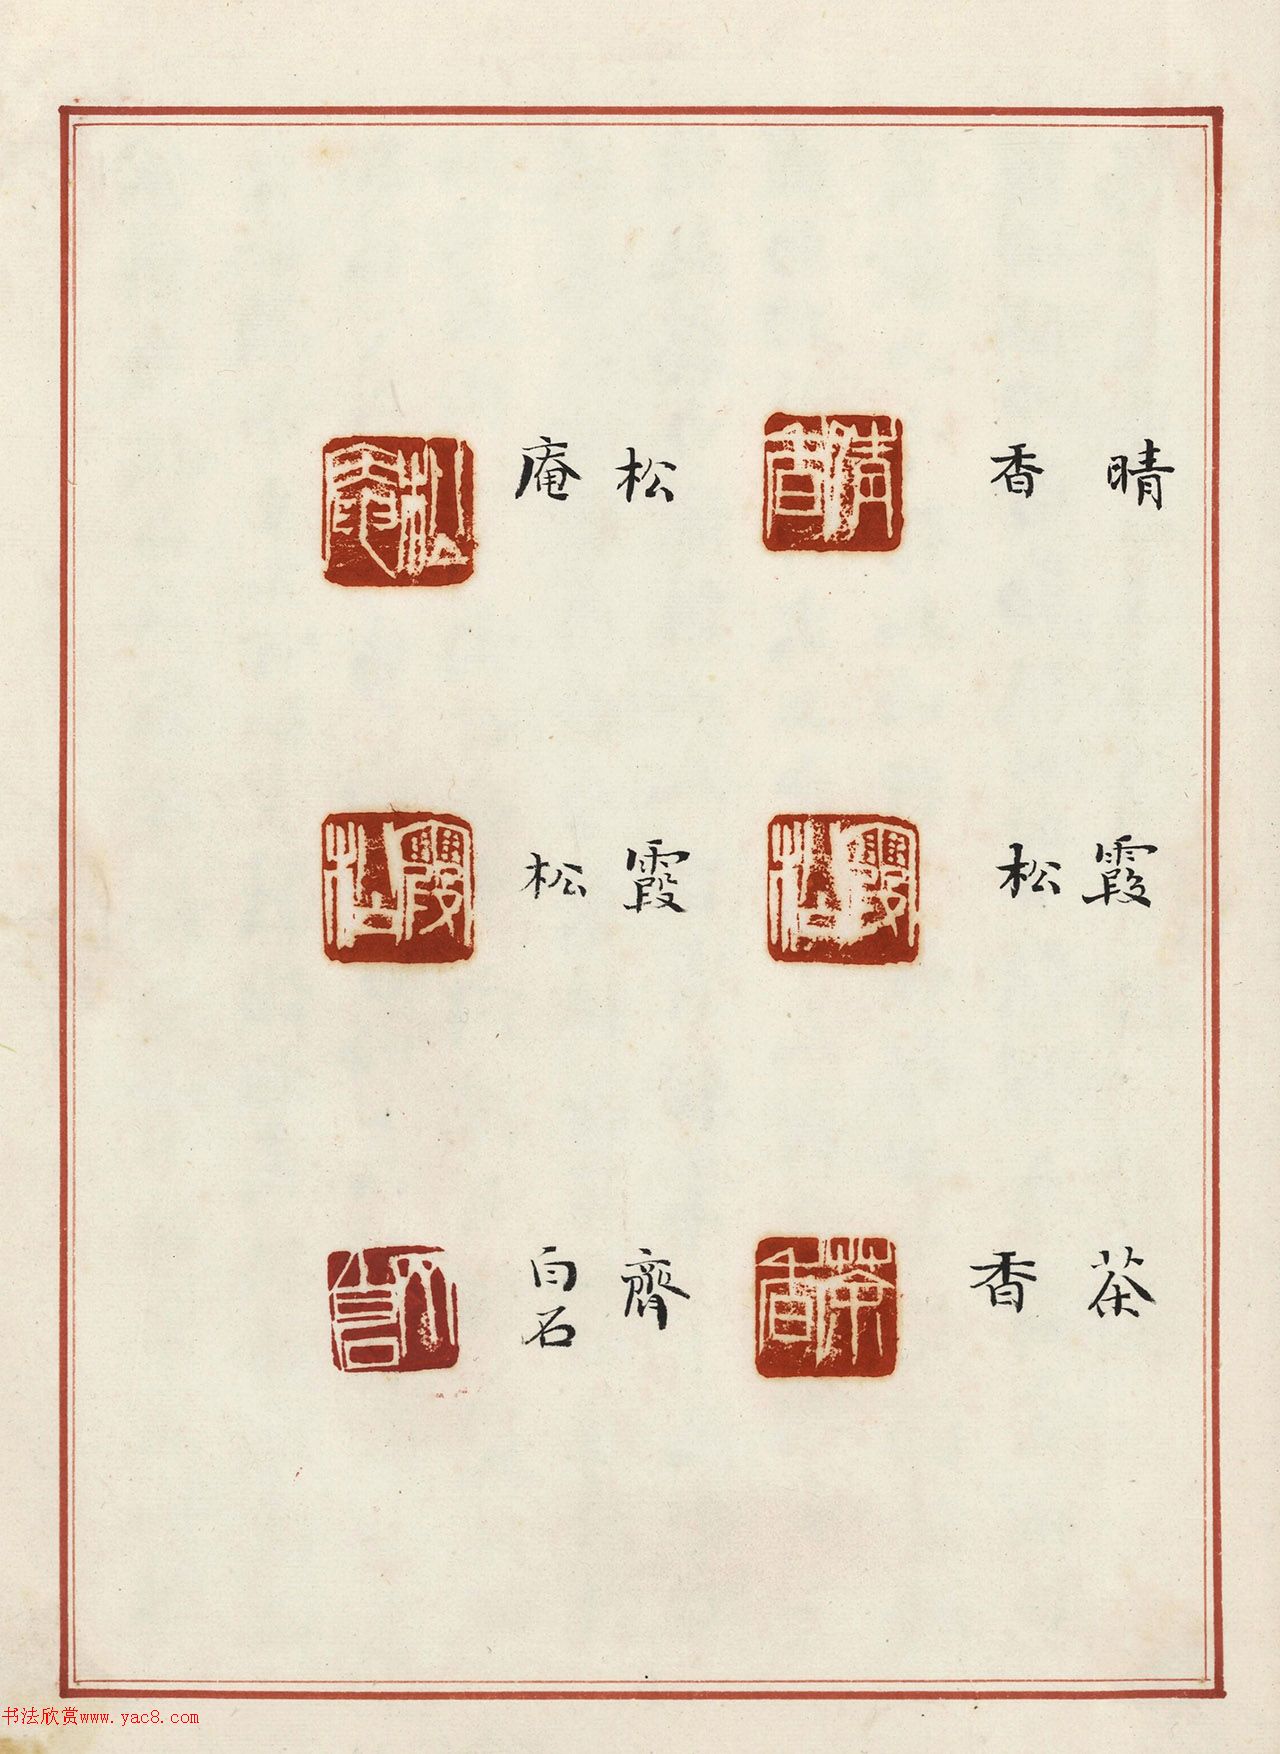 晴香
松庵
霞松
霞松
茶香
齊白石
书法欣赏www.yac8.com